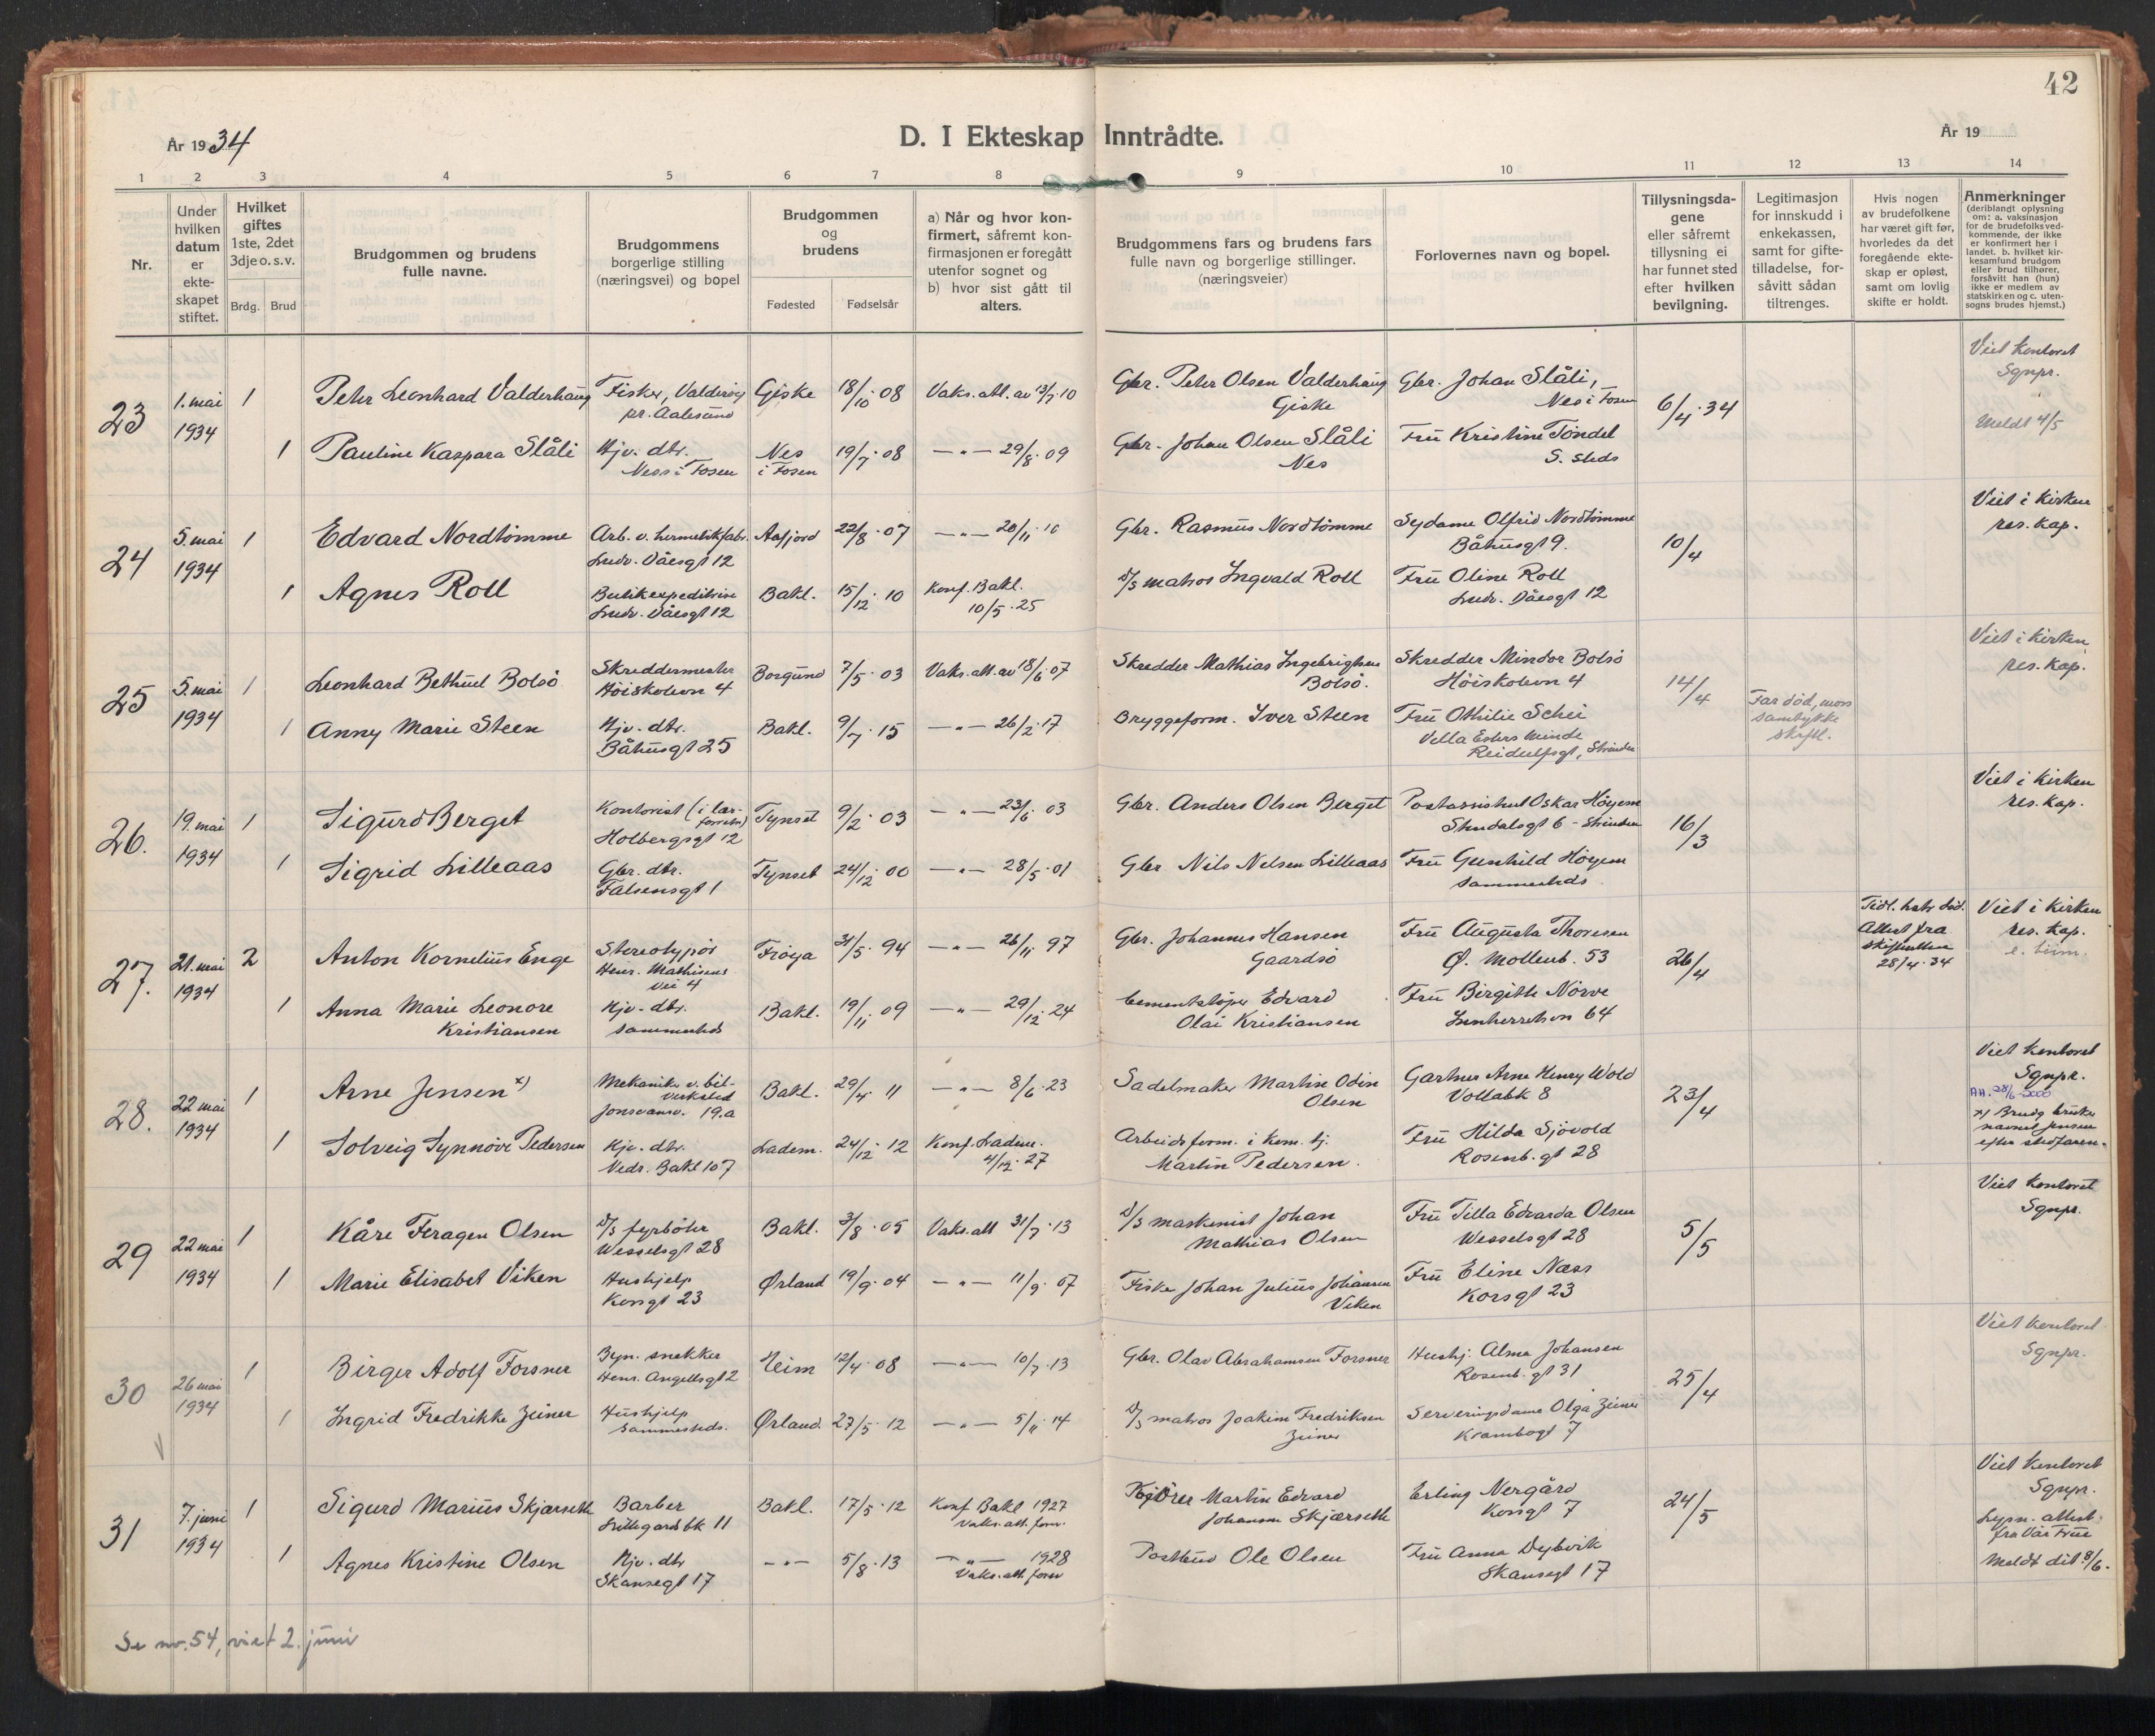 42
År 1934
D. I Ekteskap Inntrådte.
År 19
1 2 3 4 5 6 7 8 9 10 11 12 13 14
Nr.
Under hvilken datum er ekteskapet stiftet.
Hvilket giftes 1ste, 2det 3dje o. s. v.
Brdg. Brud
Brudgommen og brudens fulle navne.
Brudgommens borgerlige stilling (næringsvei) og bopel
Brudgommen og brudens
Fødested Fødselsår
a) Når og hvor konfirmert, såfremt konfirmasjonen er foregått utenfor sognet og
b) hvor sist gått til alters.
Brudgommens fars og brudens fars fulle navn og borgerlige stillinger. (næringsveier)
Forlovernes navn og bopel.
Tillysningsdagene eller såfremt tillysning ei har funnet sted efter hvilken bevilgning.
Legitimasjon for innskudd i enkekassen, samt for giftetilladelse, forsåvitt sådan tiltrenges.
Hvis nogen av brudefolkene har været gift før, hvorledes da det foregående ekteskap er opløst, samt om lovlig skifte er holdt.
Anmerkninger (deriblandt oplysning om: a. vaksinasjon for de brudefolks vedkommende, der ikke er konfirmert her i landet. b. hvilket kirkesamfund brudgom eller brud tilhører, forsåvitt han (hun) ikke er medlem av statskirken og c. utensogns brudes hjemst.)
23 1. mai 1934 1 Peter Leonhard Valderhaug Fisker, Valderöy pr. Aalesund Giske 18/10 08 Vaks. att. av 13/7 10 Gbr. Peter Olsen Valderhaug Giske Gbr. Johan Slåli, Nes i Fosen 6/4 34 Viet kontoret Sgnpr.
1 Pauline Kaspara Slåli Hjv. dtr. Ness i Fosen Nes i Fosen 19/7 08 —"— 29/8 09 Gbr. Johan Olsen Slåli Nes Fru Kristine Töndel S. steds Meldt 4/5
24 5. mai 1934 1 Edvard Nordtömme Arb. v. hermetikfabr. Ludv. Dåesgt 12 Aafjord 22/8 07 —"— 20/11 10 Gbr. Rasmus Nordtömme Sydame Olfrid Nordtömme Båhusgt 9. 10/4 Viet i kirken res. kap.
1 Agnes Roll Butikexpeditrise Ludv. Dåesgt 12 Bakl. 15/12 10 Konf. Bakl. 10/5 25 D/S matros Ingvald Roll Fru Oline Roll Ludv. Dåesgt 12
25 5. mai 1934 1 Leonhard Bethuel Bolsö Skreddermester Höiskolevn 4 Borgund 7/5 03 Vaks. att. av 18/6 07 Skredder Mathias Ingebrigtsen Bolsö. Skredder Mindor Bolsö Höiskolevn 4 14/4 Viet i kirken res. kap.
1 Anny Marie Steen Hjv. dtr. Båhusgt 25 Bakl. 9/7 15 —"— 26/2 17 Bryggeform. Iver Steen Fru Othilie Schei Villa Esters Minde Reidulfsgt, Strinda Far död, mors samtykke skriftl.
26. 19. mai 1934 1 Sigurd Berget Kontorist (i lærforretn) Holbergsgt 12 Tynset 9/2 03 —"— 23/6 03 Gbr. Anders Olsen Berget Postassistent Oskar Höyem Stendalsgt 6 - Strinda 16/3 Viet i kirken res. kap.
1 Sigrid Lilleaas Gbr. dtr. Falsensgt 1 Tynset 24/12 00 —"— 28/5 01 Gbr Nils Nelsen Lilleaas Fru Gunhild Höyem sammesteds
27. 21. mai 1934 2 Anton Kornelius Enge Stereotypör Henr. Mathisens vei 4 Fröya 31/5 94 —"— 26/11 97 Gbr. Johannes Hansen Gaardsö Fru Augusta Thoresen Ø. Mollenb. 53 26/4 Tidl. hstr död. Attest fra skifteretten 28/4 34 Viet i kirken res. kap.
1 Anna Marie Leonore Kristiansen Hjv. dtr. sammesteds Bakl. 19/11 09 —"— 29/12 24 Cementstöper Edvard Olai Kristiansen Fru Birgitte Nörve Innherredsvn 64
28. 22 mai 1934 1 Arne Jensen x) Mekaniker v. bilverksted Jonsvansv. 19.a Bakl. 29/4 11 —"— 8/6 23 Sadelmaker Martin Odin Olsen Gartner Arne Henry Wold Vollabk 8 23/4 Viet kontoret Sgnpr.
1 Solveig Synnöve Pedersen Hjv. dtr. Nedr. Bakl 107 Ladem. 24/12 12 Konf. Ladem. 4/12 27 Arbeidsform. i kom. tj. Martin Pedersen. Fru Hilda Sjövold Rosenb. gt 28 x) Brudg bruker navnet Jensen efter stedfaren.
29 22 mai 1934 1 Kåre Feragen Olsen D/S fyrböter Wesselsgt 28 Bakl. 3/8 05 Vaks. att 31/7 13 D/S maskinist Johan Mathias Olsen Fru Tilla Edvarda Olsen Wesselsgt 28 5/5 Viet kontoret Sgnpr.
1 Marie Elisabet Viken Hushjelp Korsgt 23 Ørland 19/9 04 —"— 11/9 07 Fisker Johan Julius Johansen Viken Fru Eline Næss Korsgt 23
30 26 mai 1934 1 Birger Adolf Forsner Byn. snekker Henr. Angellsgt 2 Heim 12/4 08 —"— 10/7 13 Gbr. Olav Abrahamsen Forsner Hushj. Alma Johansen Rosenb. gt 31 25/4 Viet kontoret Sgnpr.
1 Ingrid Fredrikke Zeiner Hushjelp Sammesteds. Ørland. 27/5 12 —"— 5/11 14 D/S matros Joakim Fredriksen Zeiner Serveringsdame Olga Zeiner Krambogt 7
31 7. juni 1934 1 Sigurd Marius Skjærseth Barber Lillegårdsbk 11 Bakl. 17/5 12 Konf Bakl 1927 Vaks. att. forev. Kjörer Martin Edvard Johansen Skjærseth Erling Nergård Korsgt 7 24/5 Viet kontoret Sgnpr.
1 Agnes Kristine Olsen Hjv. dtr Skansegt 17 —"— 5/8 13 —"— 1928 Vaks. att. forev Postbud Ole Olsen Fru Anna Dybvik Skansegt 17 Lysn. attest. fra Vår Frue Meldt dit 8/6.
Se nr. 54, viet 2. juni